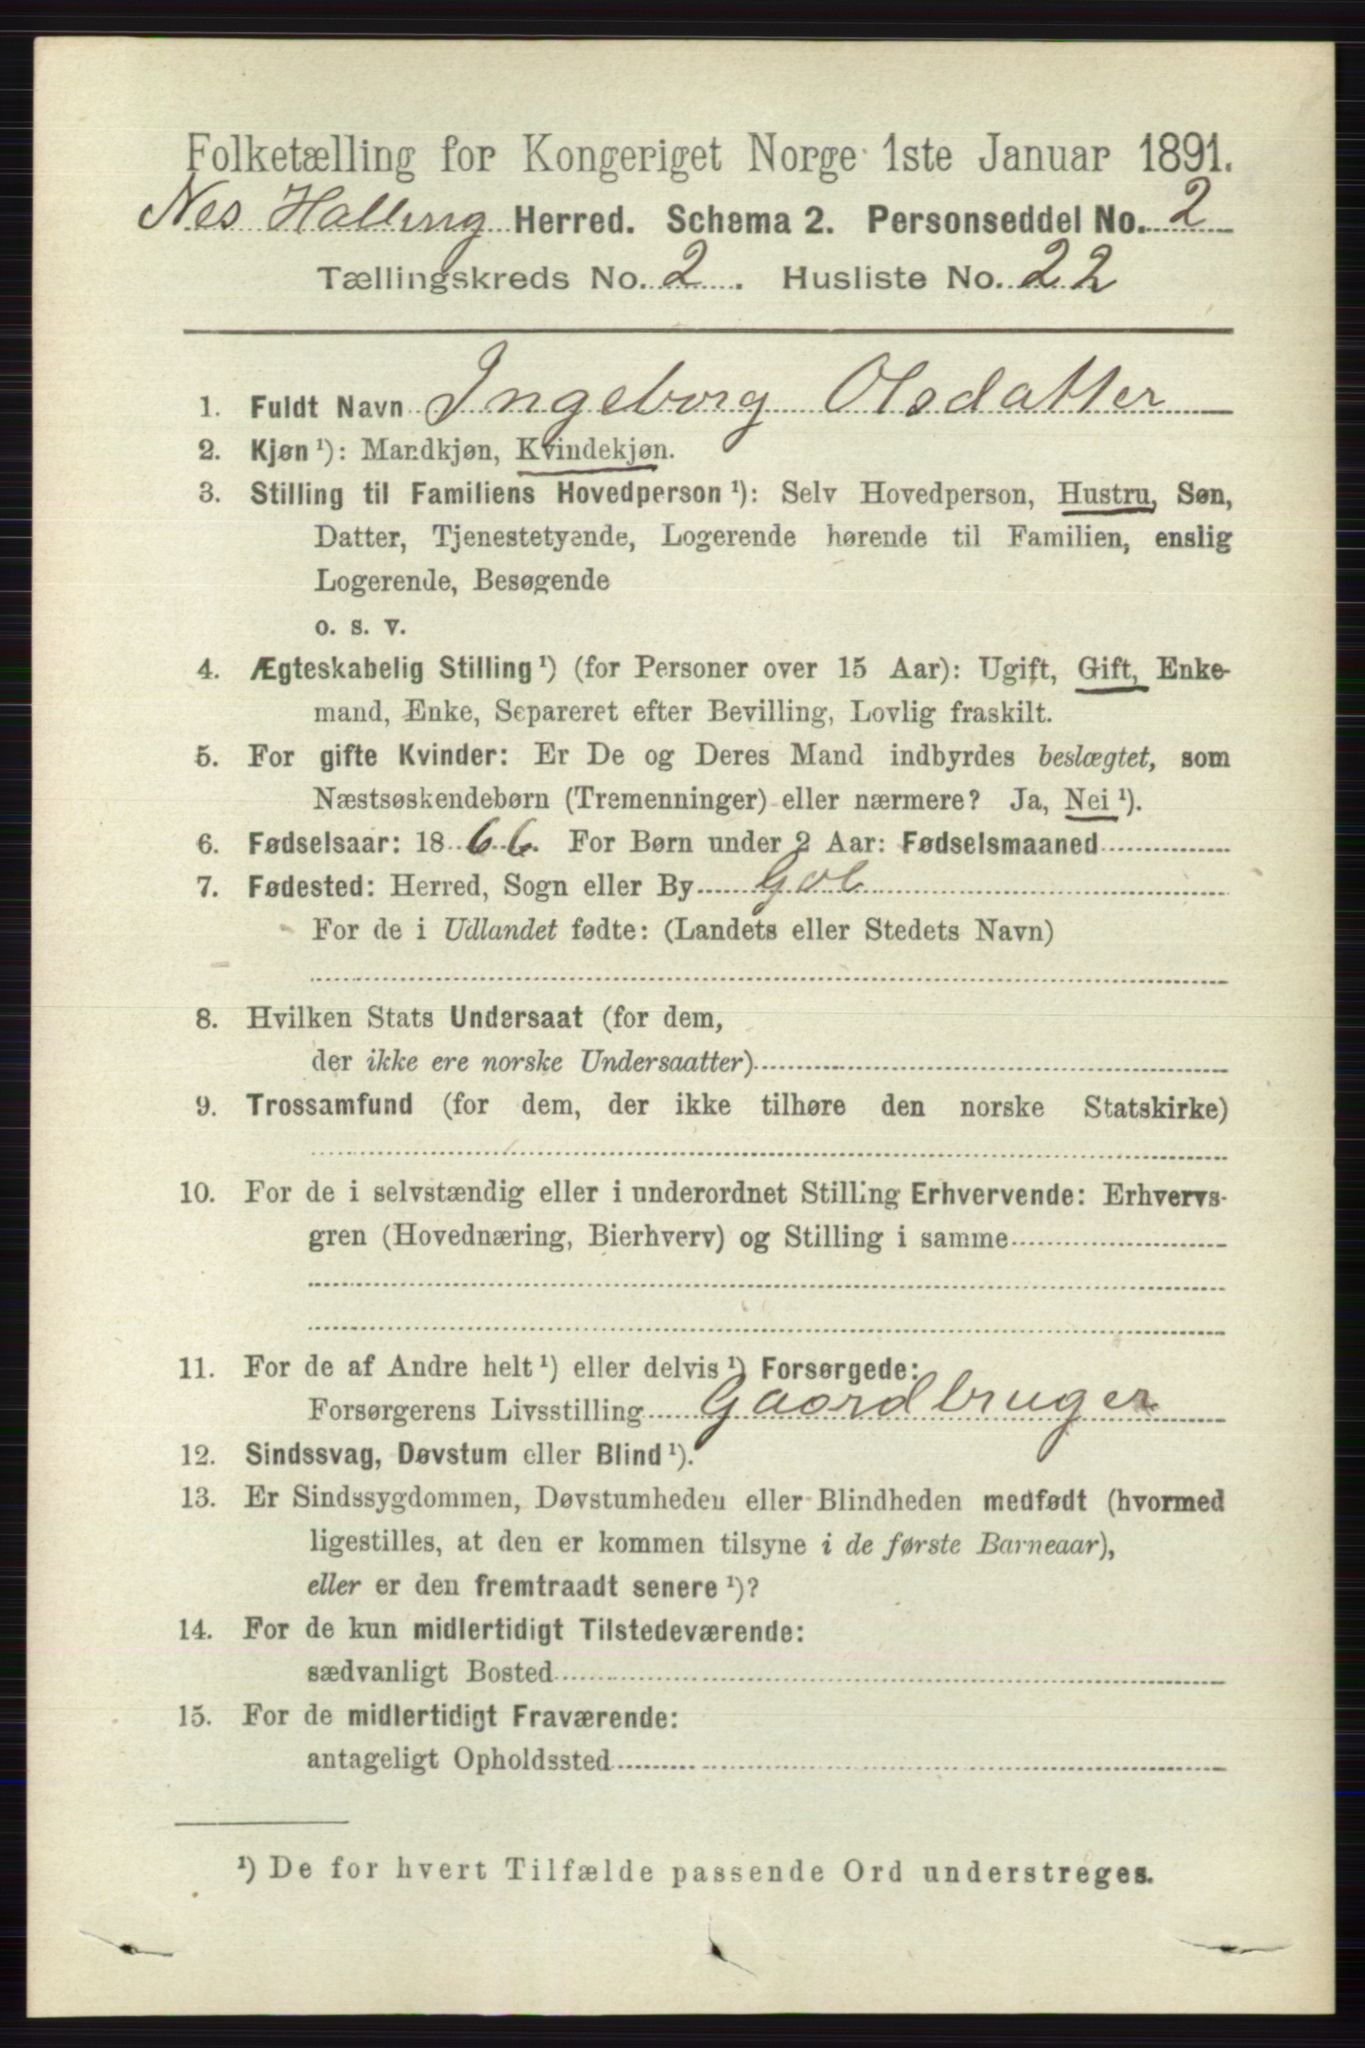 Folketælling for Kongeriget Norge 1ste Januar 1891.
Nes Halling Herred. Schema 2. Personseddel No. 2
Tællingskreds No. 2. Husliste No. 22
1. Fuldt Navn Ingeborg Olsdatter
2. Kjøn ¹): Mandkjøn, Kvindekjøn.
3. Stilling til Familiens Hovedperson ¹): Selv Hovedperson, Hustru, Søn,
Datter, Tjenestetyende, Logerende hørende til Familien, enslig
Logerende, Besøgende
o. s. v.
4. Ægteskabelig Stilling ¹) (for Personer over 15 Aar): Ugift, Gift, Enke-
mand, Enke, Separeret efter Bevilling, Lovlig fraskilt.
5. For gifte Kvinder: Er De og Deres Mand indbyrdes beslægtet, som
Næstsøskendebørn (Tremenninger) eller nærmere? Ja, Nei ¹).
6. Fødselsaar: 1866. For Børn under 2 Aar: Fødselsmaaned
7. Fødested: Herred, Sogn eller By Gol
For de i Udlandet fødte: (Landets eller Stedets Navn)
8. Hvilken Stats Undersaat (for dem,
der ikke ere norske Undersaatter)
9. Trossamfund (for dem, der ikke tilhøre den norske Statskirke)
10. For de i selvstændig eller i underordnet Stilling Erhvervende: Erhvervs-
gren (Hovednæring, Bierhverv) og Stilling i samme
11. For de af Andre helt ¹) eller delvis ¹) Forsørgede:
Forsørgerens Livsstilling Gaardbruger
12. Sindssvag, Døvstum eller Blind ¹).
13. Er Sindssygdommen, Døvstumheden eller Blindheden medfødt (hvormed
ligestilles, at den er kommen tilsyne i de første Barneaar),
eller er den fremtraadt senere ¹)?
14. For de kun midlertidigt Tilstedeværende:
sædvanligt Bosted
15. For de midlertidigt Fraværende:
antageligt Opholdssted
¹) De for hvert Tilfælde passende Ord understreges.